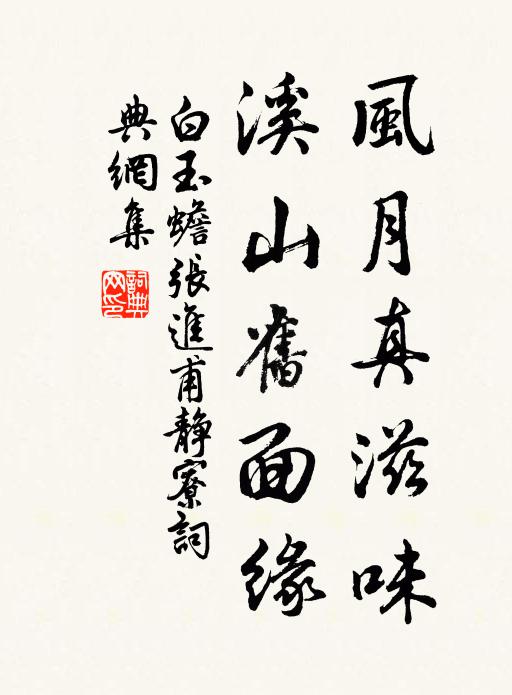 風月真滋味
溪山舊面緣
白玉蟾張進甫靜寮詞
典網集
詞典網印